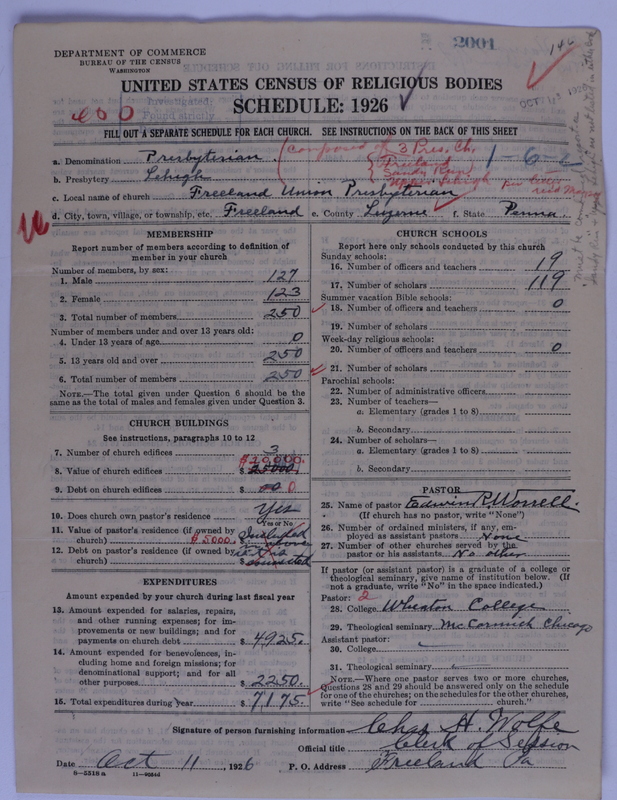 DEPARTMENT OF COMMERCE
BUREAU OF THE CENSUS
WASHINGTON
2001
146
UNITED STATES CENSUS OF RELIGIOUS BODIES
SCHEDULE: 1926
400
Investigated:
Found strictly
FILL OUT A SEPARATE SCHEDULE FOR EACH CHURCH. SEE INSTRUCTIONS ON THE BACK OF THIS SHEET
a. Denomination Presbyterian
composed of 3 Pres. Ch.
Freeland
Sandy Run
Upper Lehigh
per letter
1-6-
b. Presbytery Lehigh
c. Local name of church Freeland Union Presbyterian
d. City, town, village, or township, etc. Freeland e. County Luzerne f. State Penna.
MEMBERSHIP
Report number of members according to definition of member in your church
Number of members, by sex:
1. Male 127
2. Female 123
3. Total number of members 250
Number of members under and over 13 years old:
4. Under 13 years of age 0
5. 13 years old and over 250
6. Total number of members 250
NOTE.—The total given under Question 6 should be the same as the total of males and females given under Question 3.
CHURCH BUILDINGS
See instructions, paragraphs 10 to 12
7. Number of church edifices 3
$20,000.
8. Value of church edifices $ 25000.
9. Debt on church edifices $ 00 0
10. Does church own pastor's residence Yes
Yes or No
11. Value of pastor's residence (if owned by church) $5000. $ Included above
12. Debt on pastor's residence (if owned by church) $
EXPENDITURES
Amount expended by your church during last fiscal year
13. Amount expended for salaries, repairs, and other running expenses; for improvements or new buildings; and for payments on church debt $ 4925.
14. Amount expended for benevolences, including home and foreign missions; for denominational support; and for all other purposes $ 2250.
15. Total expenditures during year $ 7175.
CHURCH SCHOOLS
Report here only schools conducted by this church
Sunday schools:
16. Number of officers and teachers 19
17. Number of scholars 119
Summer vacation Bible schools:
18. Number of officers and teachers 0
19. Number of scholars
Week-day religious schools:
20. Number of officers and teachers 0
21. Number of scholars
Parochial schools:
22. Number of administrative officers
23. Number of teachers—
a. Elementary (grades 1 to 8)
b. Secondary
24. Number of scholars—
a. Elementary (grades 1 to 8)
b. Secondary
PASTOR
25. Name of pastor Edwin R. Worrell.
(If church has no pastor, write "None")
26. Number of ordained ministers, if any, employed as assistant pastors None
27. Number of other churches served by the pastor or his assistants No other
If pastor (or assistant pastor) is a graduate of a college or theological seminary, give name of institution below. (If not a graduate, write "No" in the space indicated.)
Pastor: 2
28. College Wheaton College
29. Theological seminary McCormick Chicago
Assistant pastor:
30. College
31. Theological seminary
NOTE.—Where one pastor serves two or more churches, Questions 28 and 29 should be answered only on the schedule for one of the churches; on the schedules for the other churches, write "See schedule for church."
Signature of person furnishing information Chas H. Wolfe
Official title Clerk of Session
Date Oct 11, 1926 P. O. Address Freeland Pa
8-5518 a